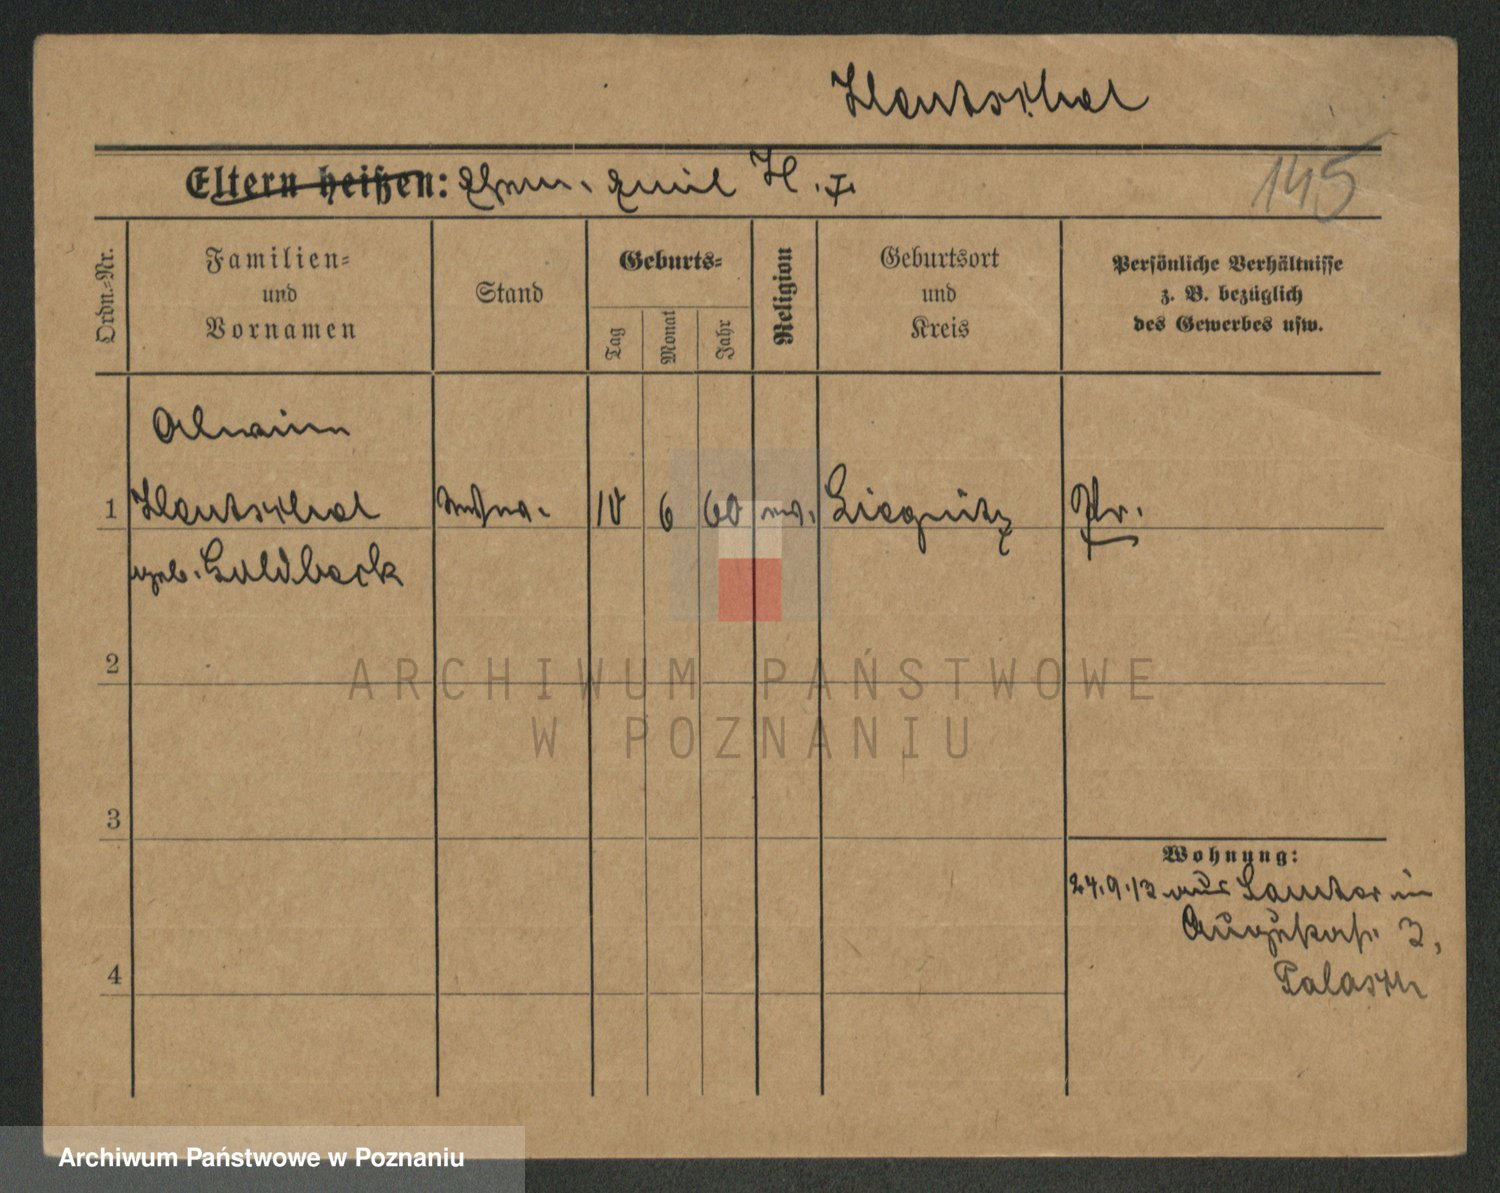 Hautsthal
145
Eltern heißen: Ehem. Emil H. †
Ordn.-Nr.
Familien-
und
Vornamen
Stand
Geburts-
Tag
Monat
Jahr
Religion
Geburtsort
und
Kreis
Persönliche Verhältnisse
z. B. bezüglich
des Gewerbes usw.
Alwine
1 10 6 60 ev. Liegnitz Pr.
geb. Goldbach
2
3
4
Wohnung:
24.9.13 aus in
Augustastr. 3,
ARCHIWUM PAŃSTWOWE
W POZNANIU
Archiwum Państwowe w Poznaniu